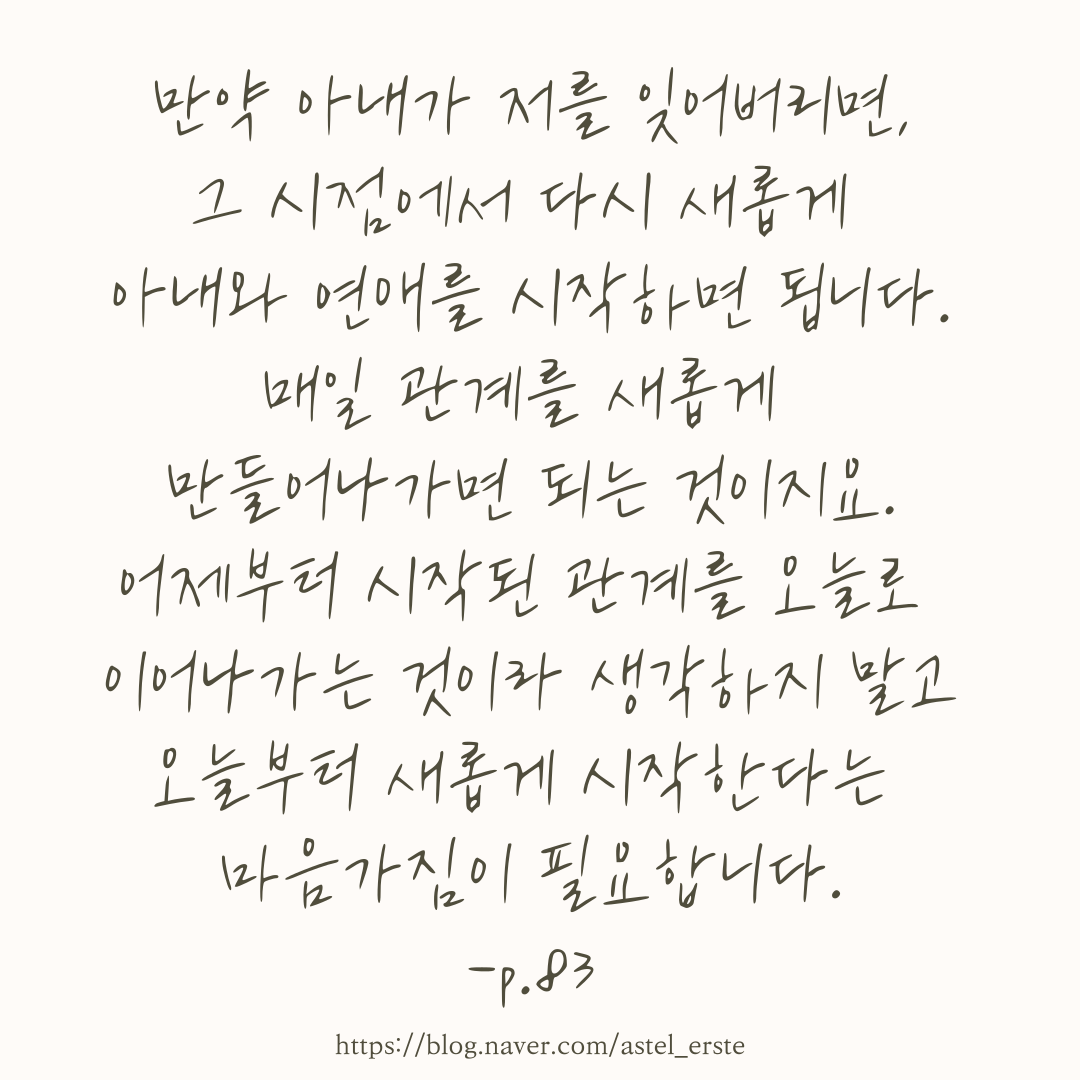 만약 아내가 저를 잊어버리면,
그 시점에서 다시 새롭게
아내와 연애를 시작하면 됩니다.
매일 관계를 새롭게
만들어나가면 되는 것이지요.
어제부터 시작된 관계를 오늘로
이어나가는 것이라 생각하지 말고
오늘부터 새롭게 시작한다는
마음가짐이 필요합니다.
-p.83
https://blog.naver.com/astel_erste